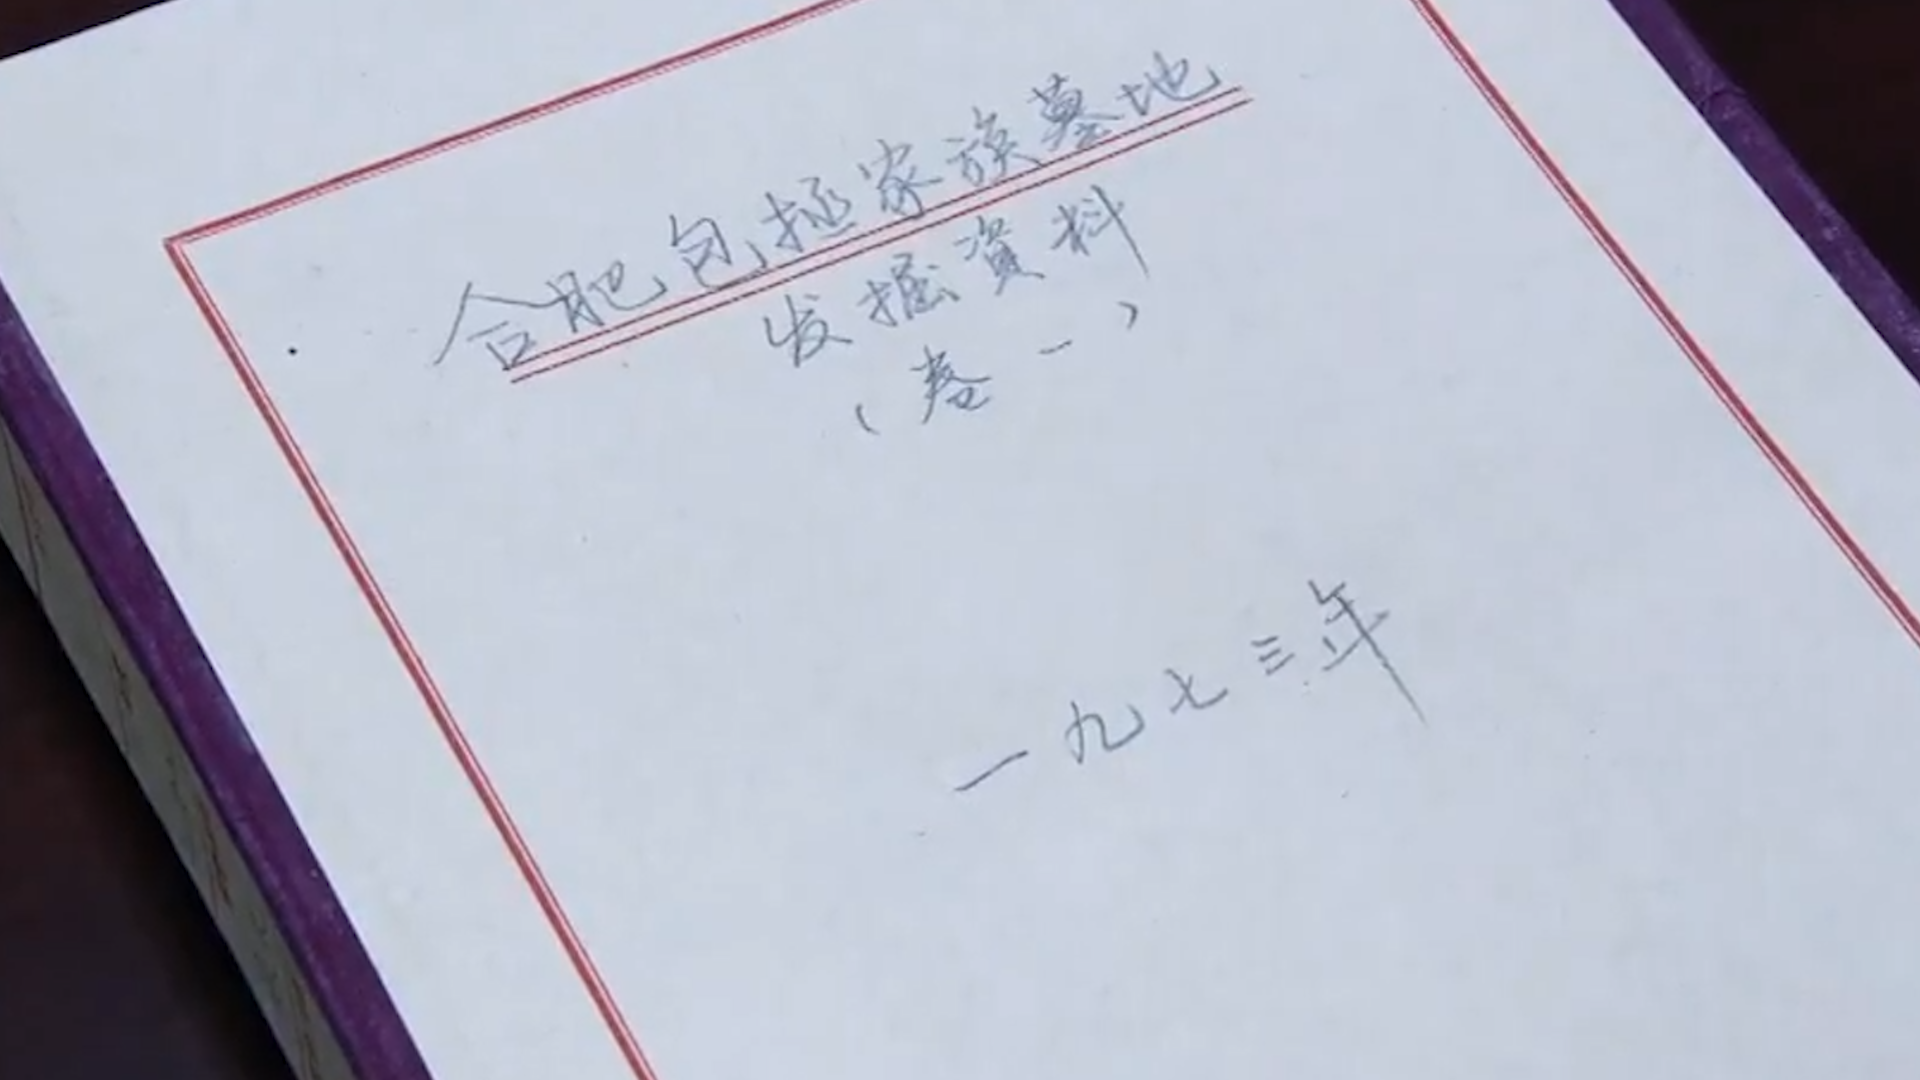 合肥包拯家族墓地
发掘資料
（卷一）
一九七三年